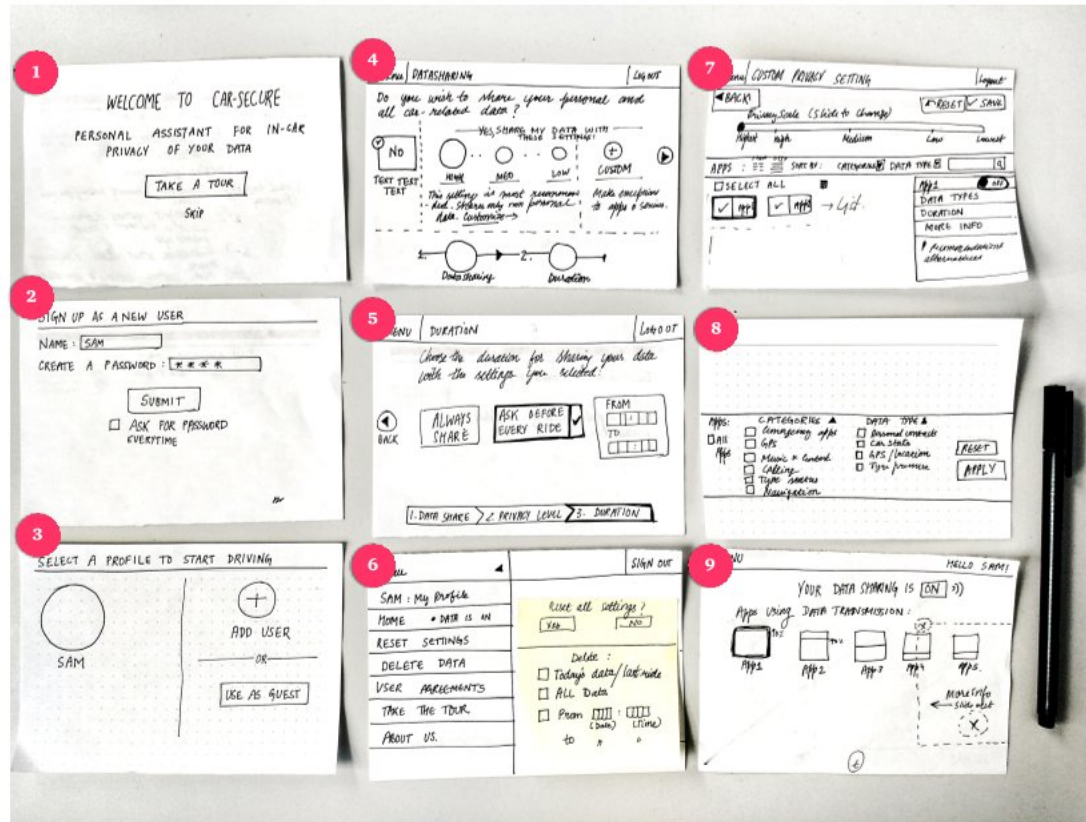 1
WELCOME TO CAR-SECURE
PERSONAL ASSISTANT FOR IN-CAR
PRIVACY OF YOUR DATA
TAKE A TOUR
SKIP
2
SIGN UP AS A NEW USER
NAME: SAM
CREATE A PASSWORD: ****
SUBMIT
ASK FOR PASSWORD
EVERYTIME
3
SELECT A PROFILE TO START DRIVING
SAM
ADD USER
OR
USE AS GUEST
4
DATASHARING
LOG OUT
Do you wish to share your personal and
all car-related data?
YES, SHARE MY DATA WITH
THESE SETTINGS:
NO
TEXT TEXT
TEXT
HIGH
MED
LOW
CUSTOM
This setting is most recommen
ded. Shares only non personal
data. Customize
Make exceptions
to apps & services.
1.
2.
Datasharing
Duration
5
MENU
DURATION
LOGOUT
Choose the duration for sharing your data
with the settings you selected:
BACK
ALWAYS
SHARE
ASK BEFORE
EVERY RIDE
FROM
TO
1. DATA SHARE
2. PRIVACY LEVEL
3. DURATION
6
SIGN OUT
SAM: My Profile
HOME • DATA IS ON
RESET SETTINGS
DELETE DATA
USER AGREEMENTS
TAKE THE TOUR
ABOUT US.
Reset all settings?
YES
NO
Delete:
Today's data/last ride
ALL Data
From (Date) : (Time)
to " "
7
CUSTOM PRIVACY SETTING
Logout
BACK!
RESET
SAVE
Privacy Scale (Slide to Change)
Highest
high
Medium
Low
Lowest
APPS:
SORT BY:
CATEGORIES
DATA TYPE
SELECT ALL
App1
App2
List
App1
OFF
DATA TYPES
DURATION
MORE INFO
! Recommendations
alternatives
8
Apps:
All
Apps
CATEGORIES
Emergency apps
GPS
Music & Content
Calling
Tyre status
Navigation
DATA TYPE
Personal contacts
Car Stats
GPS/Location
Tyre pressure
RESET
APPLY
9
HELLO SAM!
YOUR DATA SHARING IS ON
Apps using DATA TRANSMISSION:
App1
App2
App3
App4
App5.
More Info